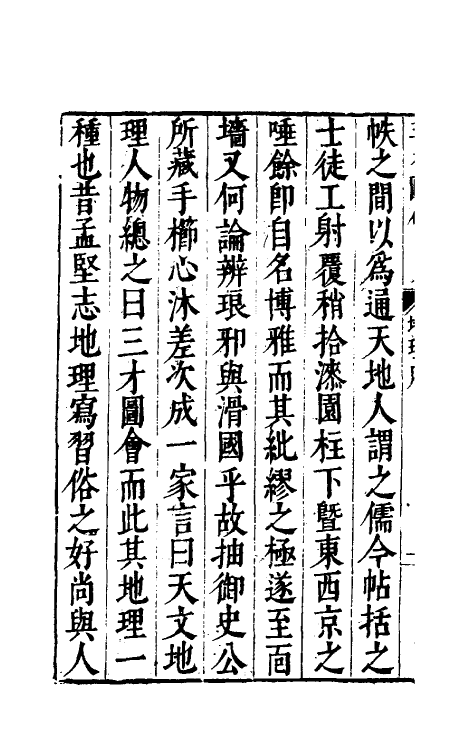 帙之間以爲通天地人謂之儒今帖括之
士徒工射覆稍拾漆園柱下曁東西京之
唾餘卽自名博雅而其紕繆之極遂至面
墻又何論辨琅邪與滑國乎故抽御史公
所藏手櫛心沐差次成一家言曰天文地
理人物總之曰三才圖會而此其地理一
種也昔孟堅志地理寫習俗之好尚與人